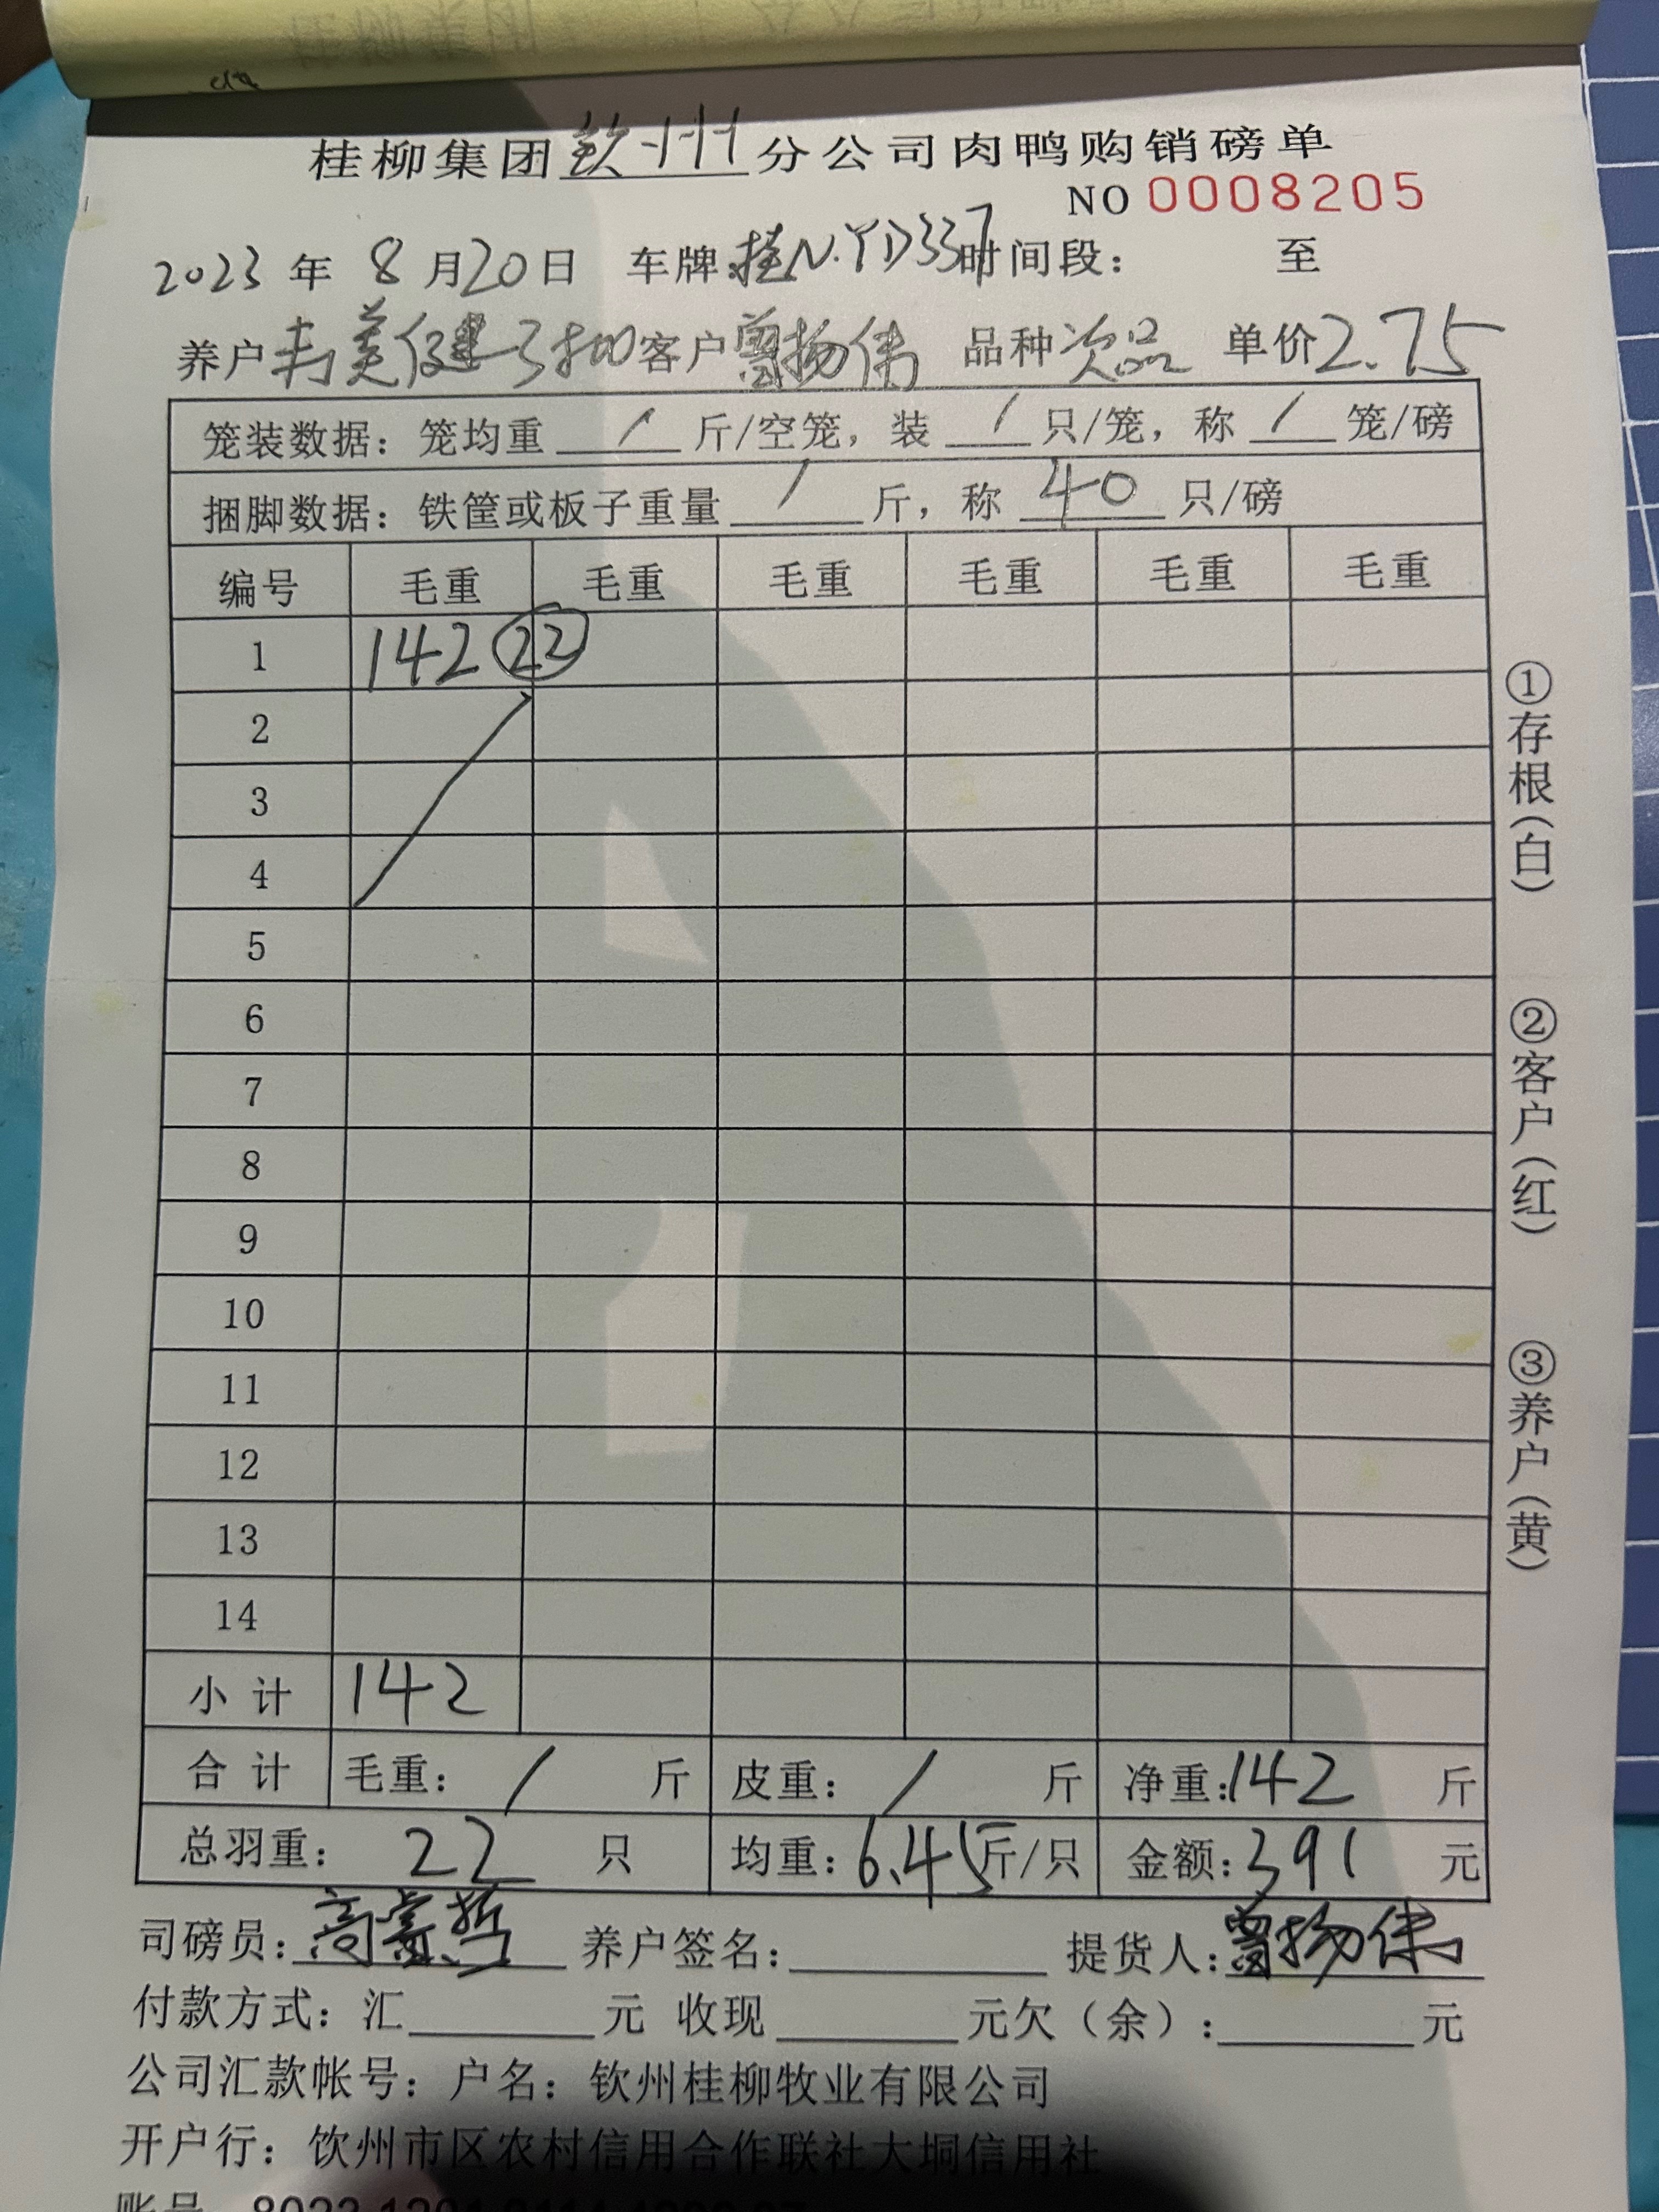 桂柳集团钦州分公司肉鸭购销磅单
NO 0008205
2023年 8月20日 车牌:桂N.YD337时间段: 至
养户韦美健3扣 客户曾扬伟 品种次品 单价2.75
笼装数据: 笼均重 / 斤/空笼, 装 / 只/笼, 称 / 笼/磅
捆脚数据: 铁筐或板子重量 / 斤, 称 40 只/磅
编号 毛重 毛重 毛重 毛重 毛重 毛重
1 142 22
2
3
4
5
6
7
8
9
10
11
12
13
14
小计 142
合计 毛重: / 斤 皮重: / 斤 净重:142 斤
总羽重: 22 只 均重:6.45斤/只 金额:391 元
司磅员: 养户签名: 提货人:曾扬伟
付款方式: 汇 元 收现 元欠(余): 元
公司汇款帐号: 户名: 钦州桂柳牧业有限公司
开户行: 钦州市区农村信用合作联社大垌信用社
①存根(白)
②客户(红)
③养户(黄)